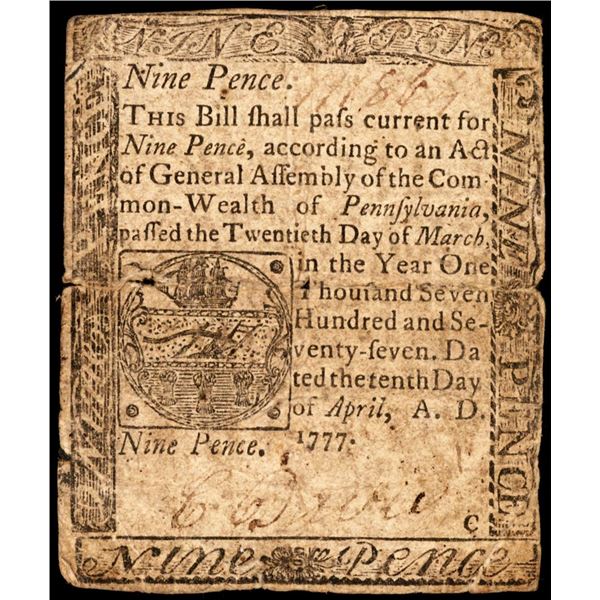 NINE PENC
Nine Pence.
THIS Bill ſhall paſs current for
Nine Pence, according to an Act
of General Aſſembly of the Com-
mon-Wealth of Pennſylvania,
paſſed the Twentieth Day of March,
in the Year One
Thouſand Seven
Hundred and Se-
venty-ſeven. Da
ted the tenth Day
of April, A. D.
Nine Pence. 1777.
C
Nine Pence
NINE PENCE